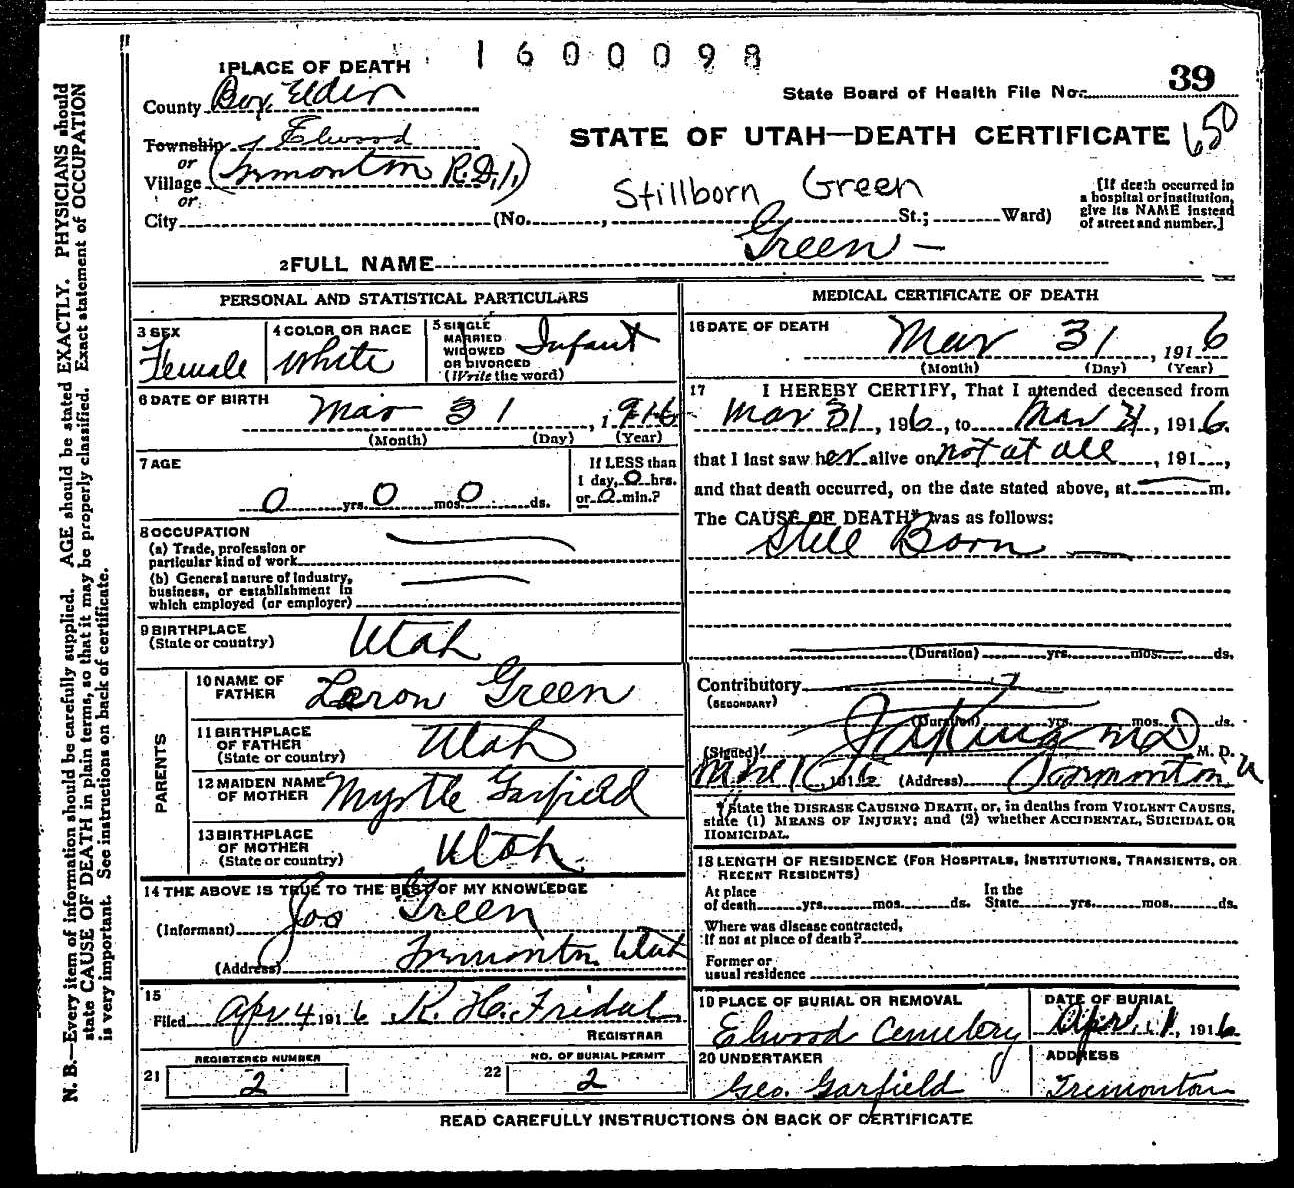 1600098
1 PLACE OF DEATH
39
State Board of Health File No.
County Box Elder
STATE OF UTAH—DEATH CERTIFICATE 650
Township Elwood
or
Village (Tremonton R.D.1.)
or
Stillborn Green
[If death occurred in
a hospital or institution,
give its NAME instead
of street and number.]
City (No. , St.; Ward)
2 FULL NAME Green —
PERSONAL AND STATISTICAL PARTICULARS
3 SEX
Female
4 COLOR OR RACE
White
5 SINGLE
MARRIED
WIDOWED
OR DIVORCED
(Write the word)
Infant
6 DATE OF BIRTH
Mar 31, 1916
(Month) (Day) (Year)
7 AGE
0 yrs. 0 mos. 0 ds.
If LESS than
1 day, 0 hrs.
or 0 min.?
8 OCCUPATION
(a) Trade, profession or
particular kind of work
(b) General nature of Industry,
business, or establishment in
which employed (or employer)
9 BIRTHPLACE
(State or country)
Utah
PARENTS
10 NAME OF
FATHER
Leron Green
11 BIRTHPLACE
OF FATHER
(State or country)
Utah
12 MAIDEN NAME
OF MOTHER
Myrtle Garfield
13 BIRTHPLACE
OF MOTHER
(State or country)
Utah
14 THE ABOVE IS TRUE TO THE BEST OF MY KNOWLEDGE
(Informant) Jos Green
(Address) Tremonton Utah
15
Filed Apr 4 1916 R. H. Fridal
REGISTRAR
21 REGISTERED NUMBER
2
22 NO. OF BURIAL PERMIT
2
MEDICAL CERTIFICATE OF DEATH
16 DATE OF DEATH
Mar 31, 1916
(Month) (Day) (Year)
17 I HEREBY CERTIFY, That I attended deceased from
Mar 31, 196, to Mar 31, 1916.
that I last saw her alive on not at all, 191 ,
and that death occurred, on the date stated above, at m.
The CAUSE OF DEATH* was as follows:
Still Born —
(Duration) yrs. mos. ds.
Contributory
(SECONDARY)
(Duration) yrs. mos. ds.
(Signed) M D M. D.
191 (Address) Tremonton U
*State the DISEASE CAUSING DEATH, or, in deaths from VIOLENT CAUSES,
state (1) MEANS OF INJURY; and (2) whether ACCIDENTAL, SUICIDAL OR
HOMICIDAL.
18 LENGTH OF RESIDENCE (FOR HOSPITALS, INSTITUTIONS, TRANSIENTS, OR
RECENT RESIDENTS)
At place
of death yrs. mos. ds.
In the
State yrs. mos. ds.
Where was disease contracted,
if not at place of death?
Former or
usual residence
19 PLACE OF BURIAL OR REMOVAL
Elwood Cemetery
DATE OF BURIAL
Apr. 1, 1916
20 UNDERTAKER
Geo. Garfield
ADDRESS
Tremonton
READ CAREFULLY INSTRUCTIONS ON BACK OF CERTIFICATE
N. B.—Every item of information should be carefully supplied. AGE should be stated EXACTLY. PHYSICIANS should
state CAUSE OF DEATH in plain terms, so that it may be properly classified. Exact statement of OCCUPATION
is very important. See instructions on back of certificate.